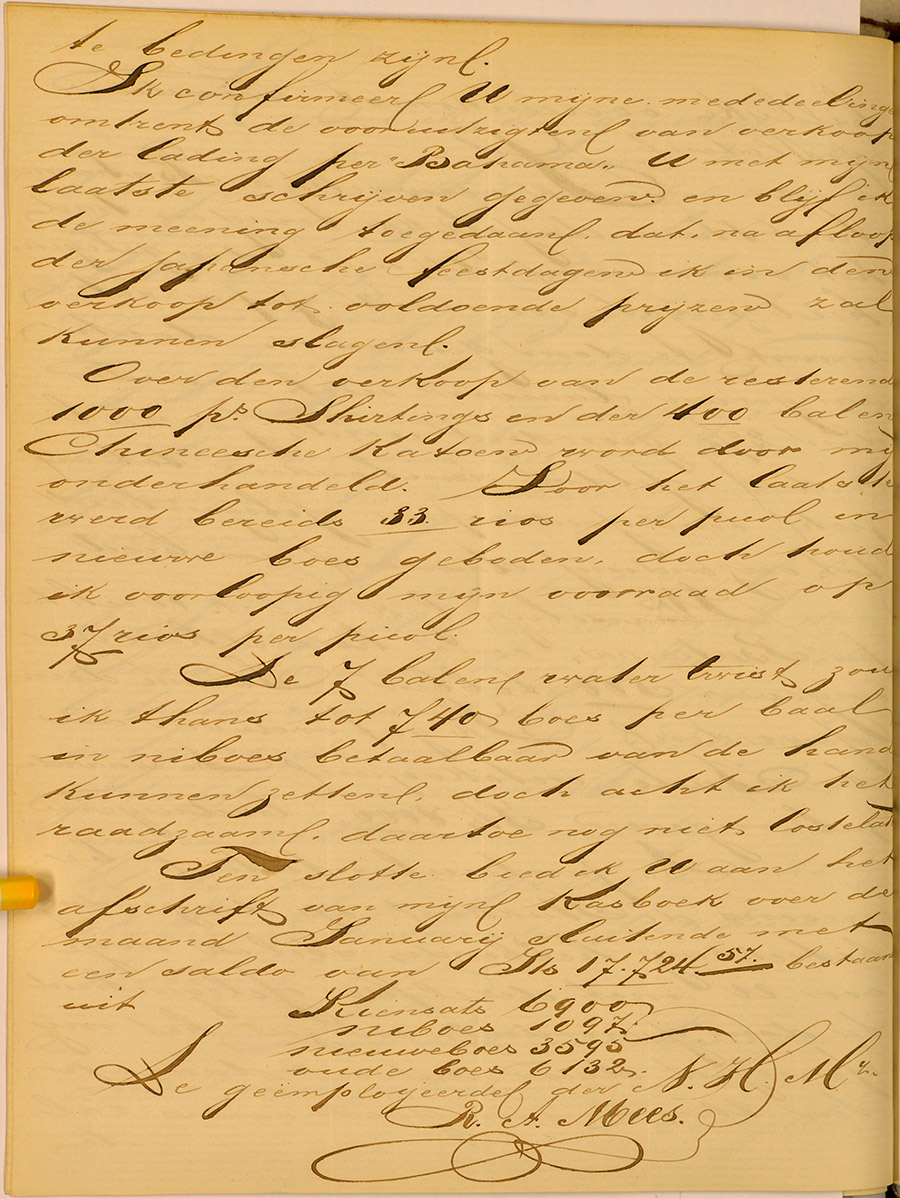 te bedingen zijn.
Ik confirmeer U mijne mededeelinge
omtrent de vooruitzigten van verkoop
der lading per "Bahama" U met mijn
laatste schrijven gegeven en blijf ik
de meening toegedaan, dat, na afloop
der Japansche feestdagen ik in den
verkoop tot voldoende prijzen zal
kunnen slagen.
Over den verkoop van de resterend
1000 ps. Shirtings en der 400 balen
Chineesche Katoen word door mij
onderhandeld. Voor het laatste
werd bereids 33 rios per picol in
nieuwe boes geboden, doch houd
ik voorloopig mijn voorraad op
37 rios per picol.
De 7 balen water twist zou
ik thans tot 740 boes per baal
in niboes betaalbaar van de hand
kunnen zetten, doch acht ik het
raadzaam, daartoe nog niet los te laten
Ten slotte bied ik U aan het
afschrift van mijn Kasboek over de
maand Januarij sluitende met
een saldo van 17.724 57. bestaan
uit Kiensats 6900
niboes 1097.
nieuwe boes 3595
oude boes 6132.
De geëmployeerde der N. H. Mij.
R. A. Mees.